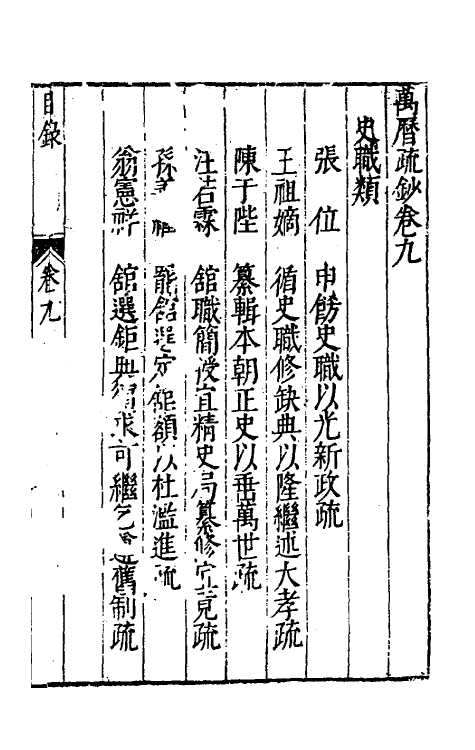 萬曆疏鈔卷九
史職類
張位 申飭史職以光新政疏
王祖嫡 循史職修缺典以隆繼述大孝疏
陳于陛 纂輯本朝正史以垂萬世疏
汪若霖 舘職簡授宜精史局纂修宜竟疏
孫 罷舘選定舘額以杜濫進疏
翁憲祥 舘選鉅典 可繼乞 舊制疏
目錄 卷九